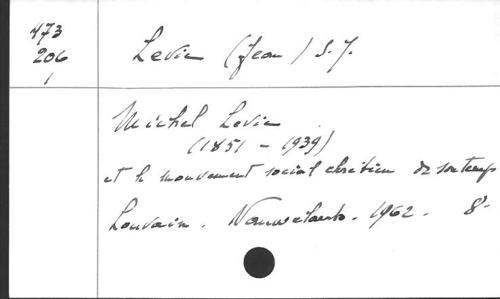 473
206
1
Levie (Jean) S.J.
Michel Levie
(1851 - 1939)
et le mouvement social chrétien de son temps
Louvain. Nauwelaerts. 1962. 8°.